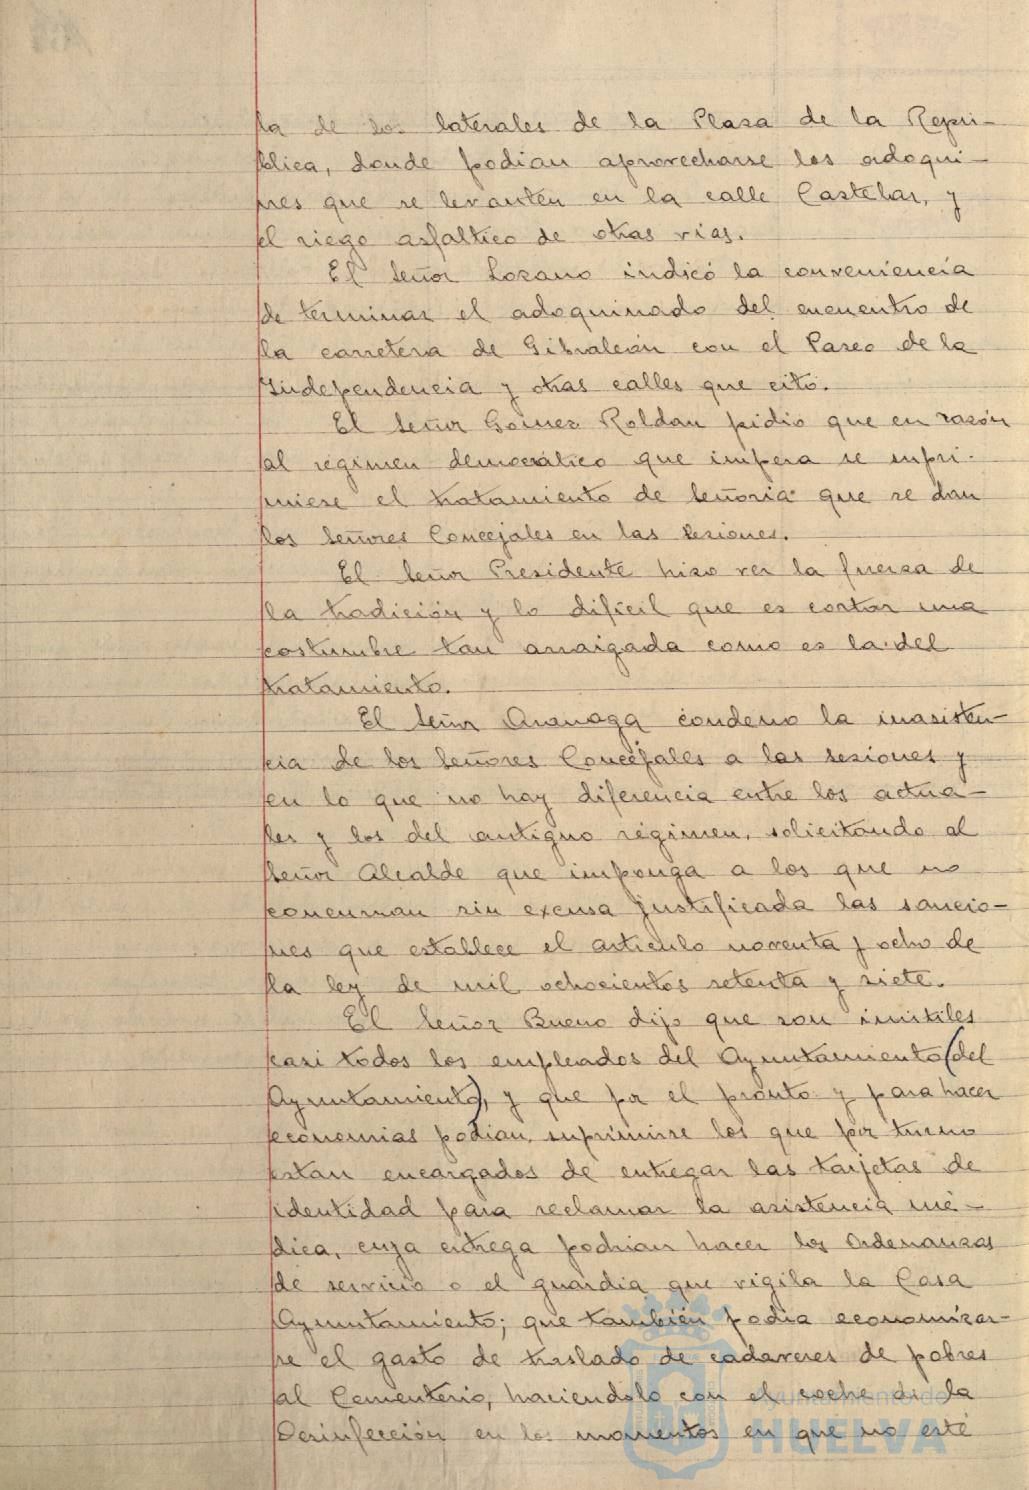 la de los laterales de la Plaza de la Repú-
blica, donde podian aprovecharse los adoqui-
nes que se levanten en la calle Castelar, y
el riego asfaltico de otras vias.
El Señor Lozano indicó la conveniencia
de terminar el adoquinado del encuentro de
la carretera de Gibraleón con el Paseo de la
Independencia y otras calles que citó.
El Señor Gómez Roldan pidió que en razón
al régimen democrático que impera se supri-
miese el tratamiento de Señoria que se dan
los Señores Concejales en las sesiones.
El Señor Presidente hizo ver la fuerza de
la tradición y lo dificil que es cortar una
costumbre tan arraigada como es la del
tratamiento.
El Señor condenó la inasisten-
cia de los Señores Concejales a las sesiones y
en lo que no hay diferencia entre los actua-
les y los del antiguo régimen, solicitando al
Señor Alcalde que imponga a los que no
concurran sin excusa justificada las sancio-
nes que establece el artículo noventa y ocho de
la ley de mil ochocientos setenta y siete.
El Señor Bueno dijo que son inútiles
casi todos los empleados del Ayuntamiento (del
Ayuntamiento), y que por el pronto y para hacer
economias podian suprimirse los que por turno
estan encargados de entregar las tarjetas de
identidad para reclamar la asistencia mé-
dica, cuya entrega podrian hacer los Ordenanzas
de servicio o el guardia que vigila la Casa
Ayuntamiento; que también podia economizar-
se el gasto de traslado de cadaveres de pobres
al Cementerio, haciendolo con el coche de la
Desinfección en los momentos en que no esté
Ayuntamiento de
HUELVA